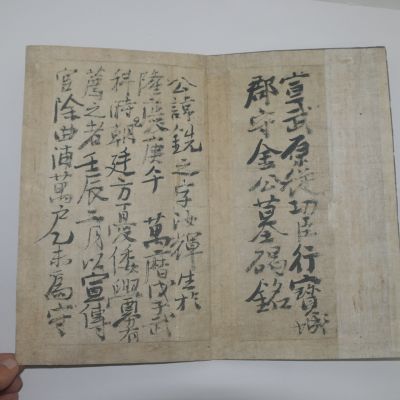 宣武原從功臣行寶城
郡守金公墓碣銘
公諱銑之字汝輝生於
隆慶庚午 萬曆戊子武
科時朝廷方憂倭釁有
薦之者壬辰二月以宣傳
官除曲浦萬戶乙未爲守